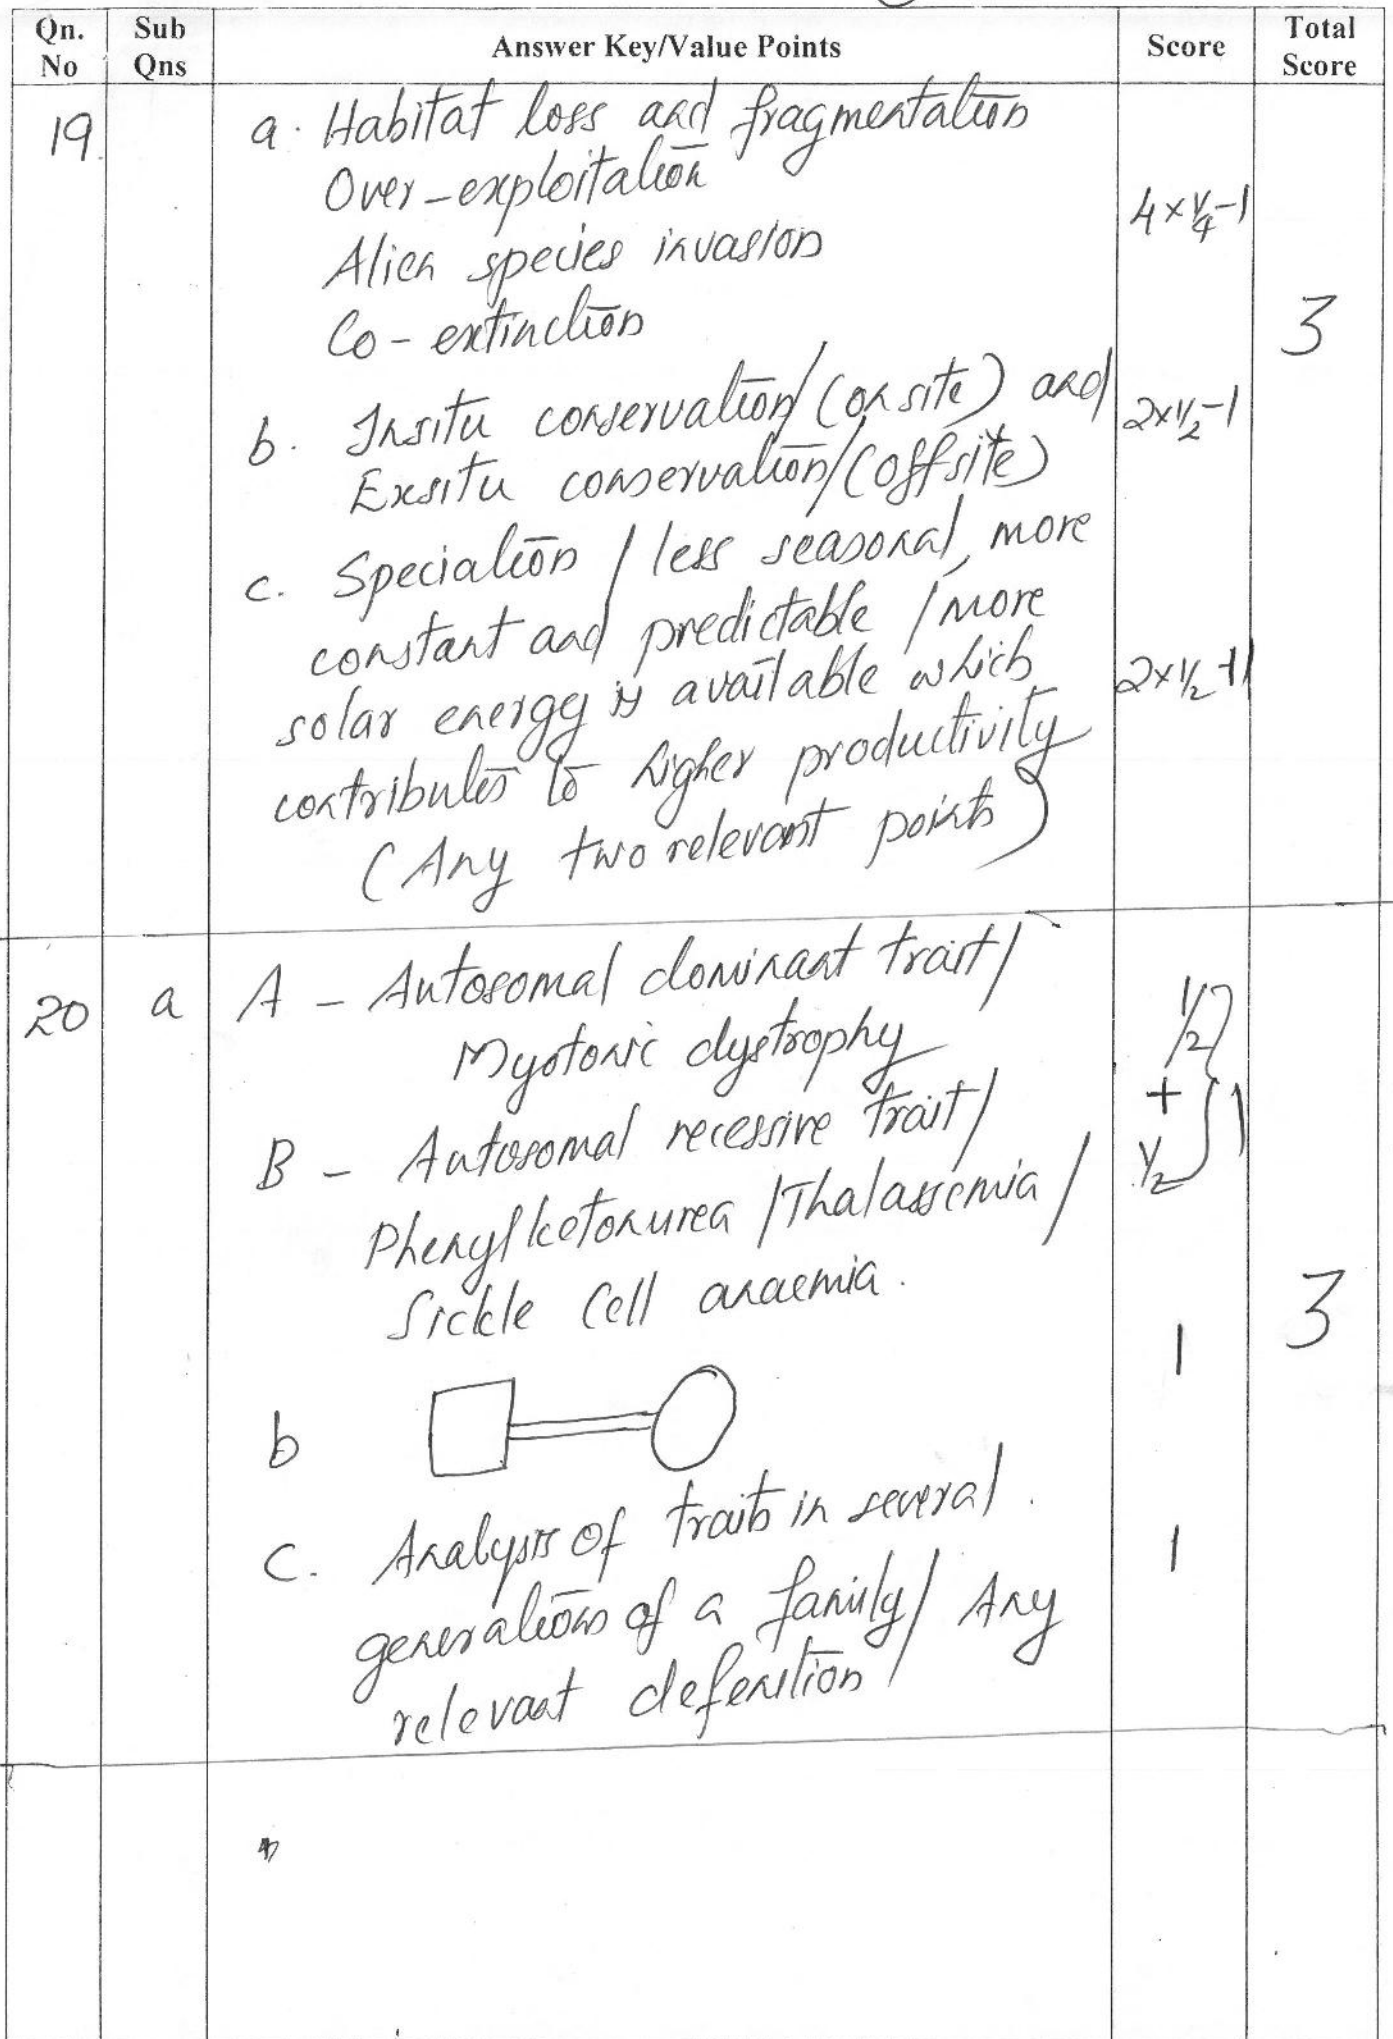 Qn. No Sub Qns Answer Key/Value Points Score Total Score
19. a. Habitat loss and fragmentation
Over-exploitation
Alien species invasion
Co-extinction
4×1/4-1
3
b. Insitu conservation/(onsite) and
Exsitu conservation/(offsite)
2×1/2-1
c. Speciation / less seasonal, more
constant and predictable / more
solar energy is available which
contributes to higher productivity
(Any two relevant points)
2×1/2-1
20 a A - Autosomal dominant trait/
Myotonic dystrophy
B - Autosomal recessive trait/
Phenylketonurea /Thalassemia/
Sickle Cell anaemia.
1/2
+
1/2
1
3
b
1
C. Analysis of traits in several.
generations of a family/ Any
relevant defenition
1